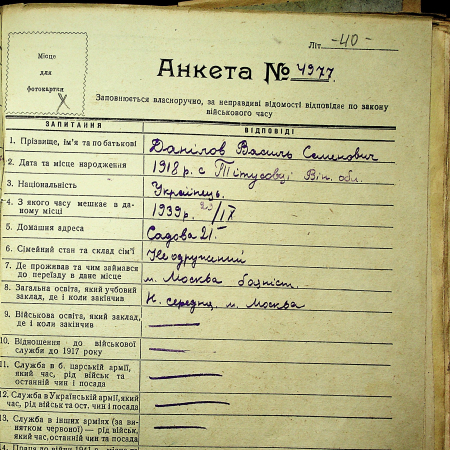 Літ. -40-
Місце
для
фотокартки
Анкета № 4977
Заповнюється власноручно, за неправдиві відомості відповідає по закону
військового часу
ЗАПИТАННЯ ВІДПОВІДІ
1. Прізвище, ім'я та по батькові Данілов Василь Семенович
2. Дата та місце народження 1918 р. с Тітусовці Він. обл.
3. Національність Українець.
4. З якого часу мешкає в даному місці 1939 р. 23/IX
5. Домашня адреса Садова 21.
6. Сімейний стан та склад сім'ї Неодружений
7. Де проживав та чим займався
до переїзду в дане місце м. Москва
8. Загальна освіта, який учбовий
заклад, де і коли закінчив Н. середня м. Москва
9. Військова освіта, який заклад,
де і коли закінчив —
10. Відношення до військової
служби до 1917 року —
11. Служба в б. царській армії,
який час, рід військ та
останній чин і посада —
12. Служба в Українській армії, який
час, рід військ та ост. чин і посада —
13. Служба в інших арміях (за ви-
нятком червоної) — рід військ,
який час, останній чин та посада —